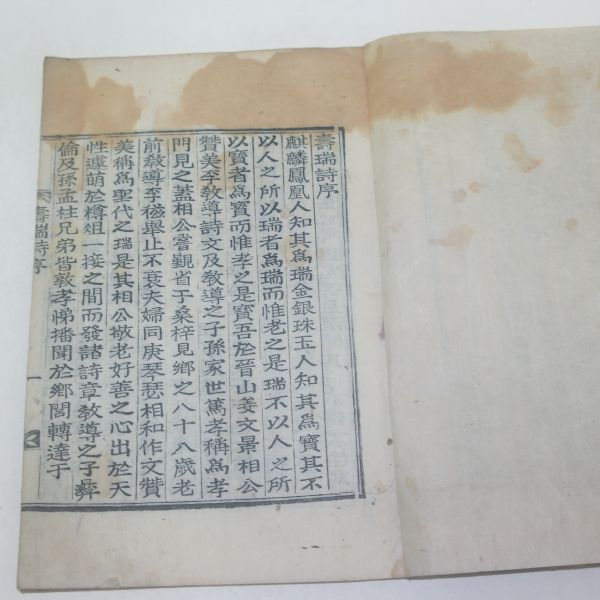 壽瑞詩序
麒麟鳳凰人知其爲瑞金銀珠玉人知其爲寶其不
以人之所以瑞者爲瑞而惟老之是瑞不以人之所
以寶者爲寶而惟孝之是寶吾於晉山姜文景相公
贊美李敎導詩文及敎導之子孫家世篤孝稱爲孝
門見之蓋相公嘗覲省于桑梓見鄕之八十八歲老
前敎導李孂舉止不衰夫婦同庚琴瑟相和作文贊
美稱爲聖代之瑞是其相公敬老好善之心出於天
性遽萌於樽俎一接之間而發諸詩章敎導之子彛
倫及孫孟柱兄弟皆敦孝悌播聞於鄕閭轉達于
壽瑞詩序
一